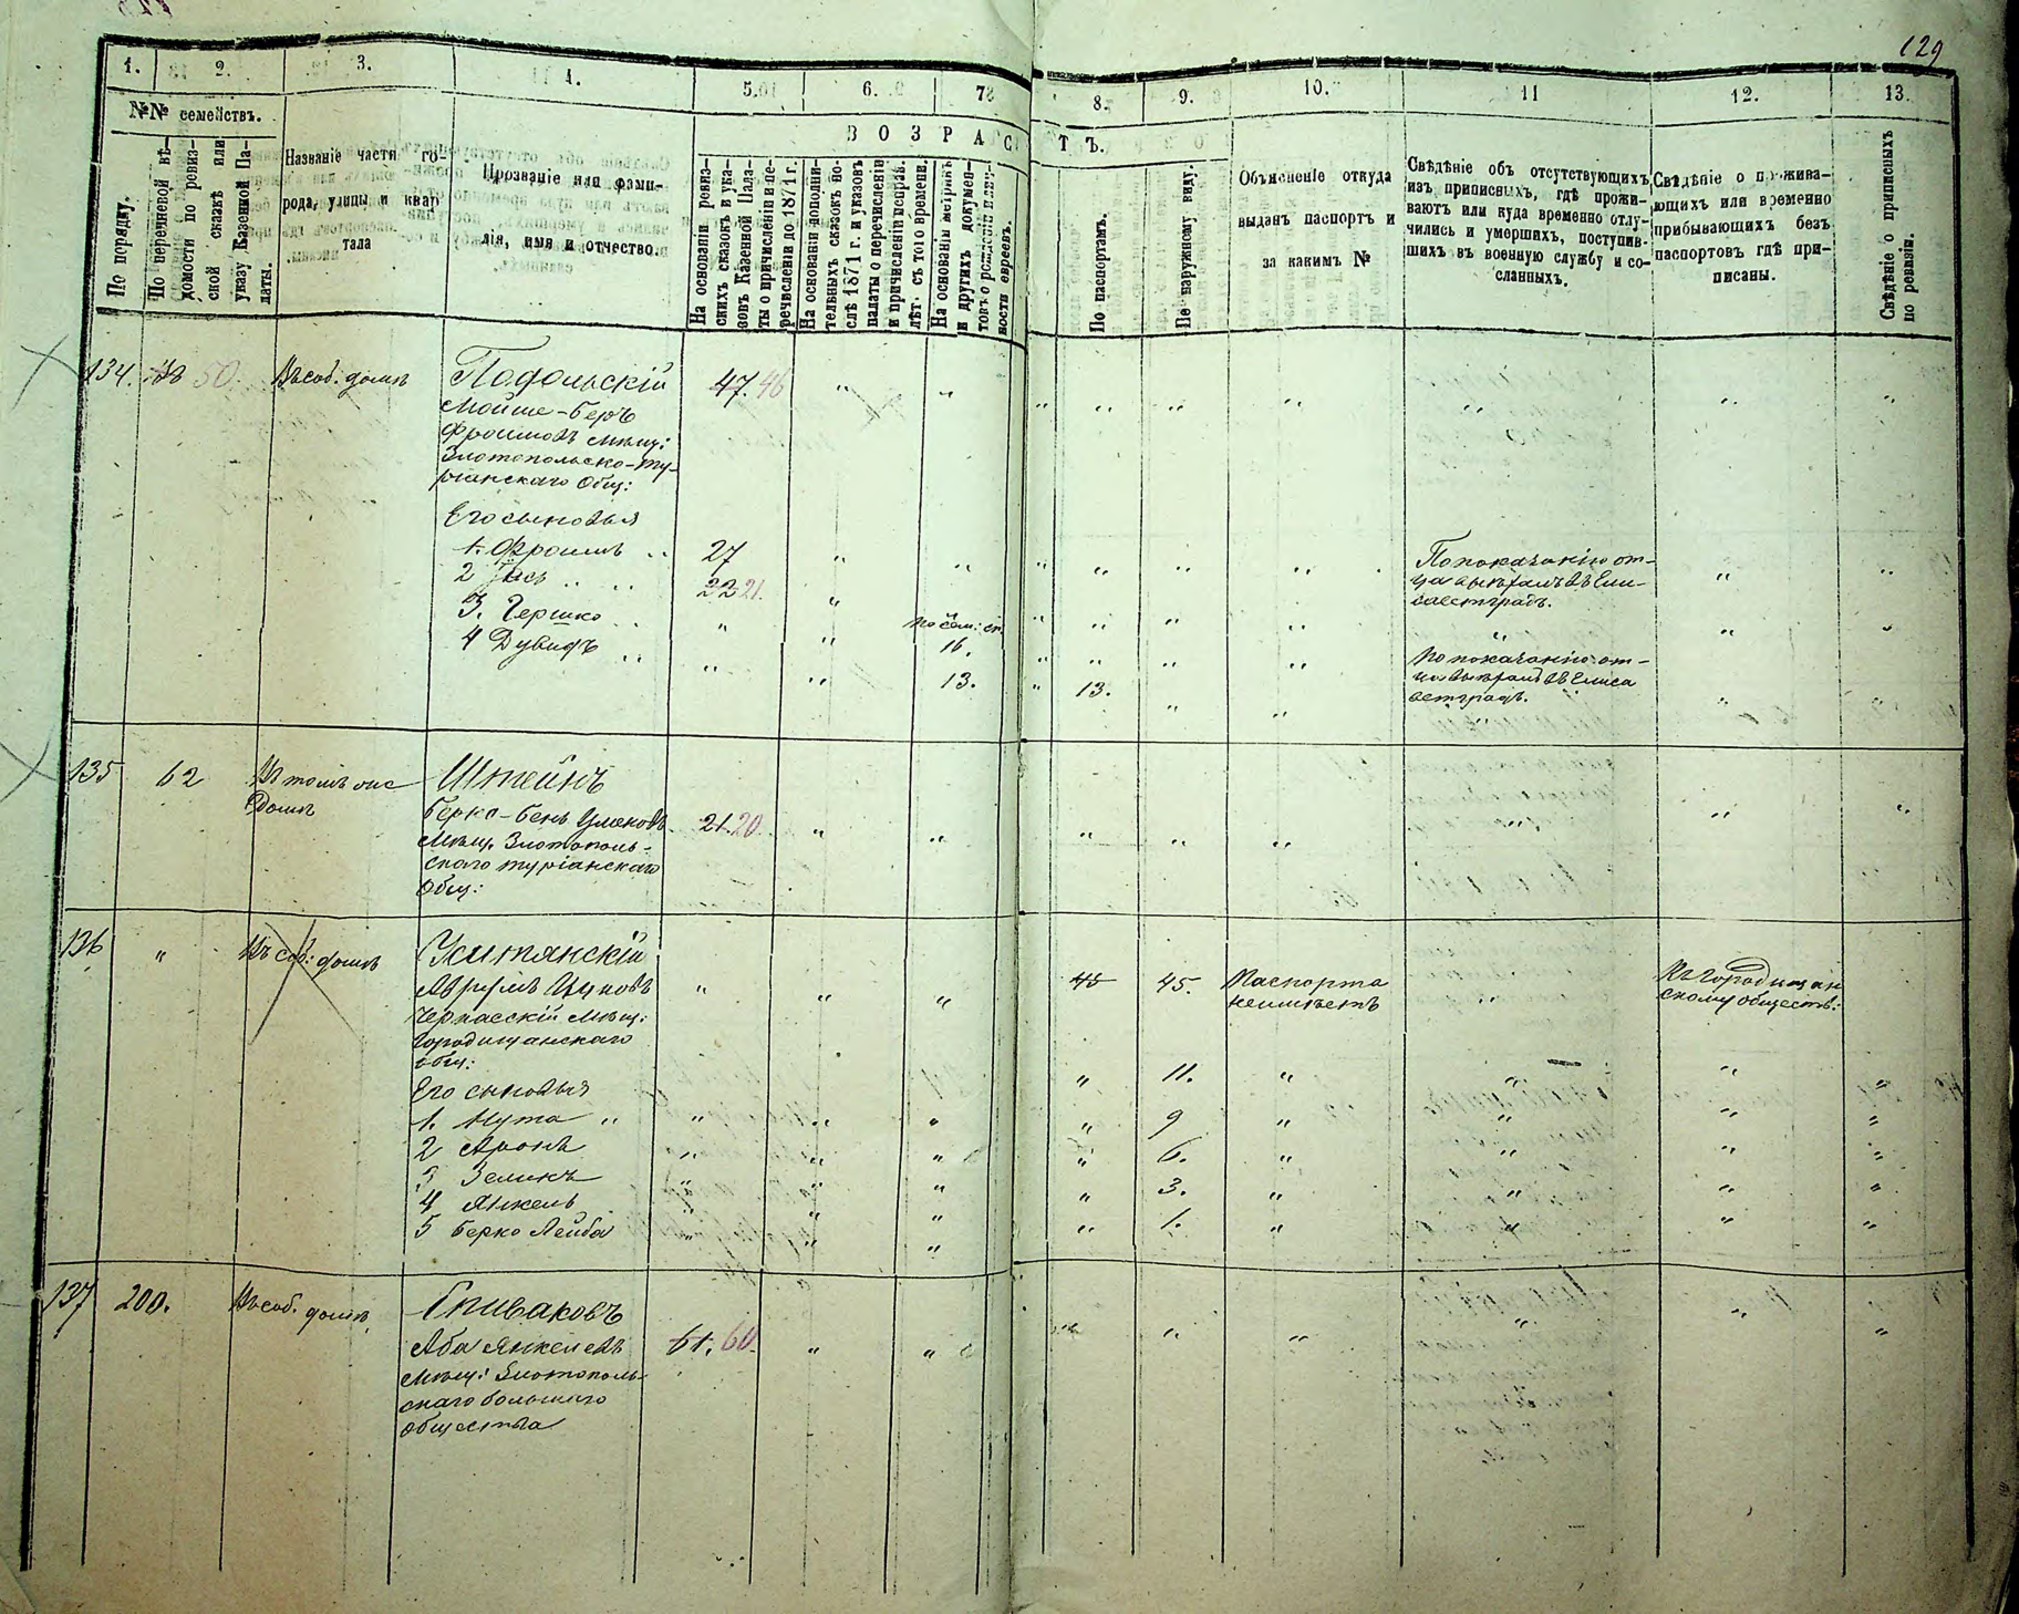 129
1. 2. 3. 4. 5. 6. 7 8. 9. 10. 11 12. 13.
№№ семействъ.
По порядку.
По перечневой вѣ-
домости по ревиз-
ской сказкѣ или
указу Казенной Па-
латы.
Названіе части го-
рода, улицы и квар
тала
Прозваніе или фами-
лія, имя и отчество.
ВОЗРАСТЪ.
На основаніи ревиз-
скихъ сказокъ и ука-
зовъ Казенной Пала-
ты о причисленіи и пе-
речисленіи до 1871 г.
На основаніи дополни-
тельныхъ сказокъ по-
слѣ 1871 г. и указовъ
палаты о перечисленіи
и причисленіи
лѣт. съ того времени.
На основаніи метрикъ
и другихъ докумен-
товъ о рожденіи
ности евреевъ.
По паспортамъ.
По наружному виду.
Объясненіе откуда
выданъ паспортъ и
за какимъ №
Свѣдѣніе объ отсутствующихъ
изъ приписныхъ, гдѣ прожи-
ваютъ или куда временно отлу-
чились и умершихъ, поступив-
шихъ въ военную службу и со-
сланныхъ.
Свѣдѣніе о прожива-
ющихъ или временно
прибывающихъ безъ
паспортовъ гдѣ при-
писаны.
Свѣдѣніе о приписныхъ
по ревизіи.
134. 50. Въ соб. домѣ Подольскій 47. 46 " "
Мойше-Беръ
Фроимовъ мѣщ:
Златопольско-ту-
ріанскаго Общ:
Его сыновья
1. Фроимъ 27 " " По показанію от-
2 22 21. " ца въ Ели-
саветградѣ.
3. Гершко " " по сем: сп. 16.
4 Дувидъ " " 13. 13. По показанію от-
ца въ Елиса
ветградѣ.
135 62 Въ томъ же Штейнъ
домѣ Берко-Бень 21. 20. " "
Мѣщ. Златополь-
скаго туріанскаго
Общ:
136 " Въ соб: домѣ Уситянскій
Аврумъ " " " 45 45. Паспорта Къ Городищан
неимѣетъ скому обществ:
Черкасскій мѣщ:
Городищанскаго
общ:
Его сыновья " 11. "
1. Нута " " 9 "
2 Аронъ " 6. "
3 Зеликъ " 3. "
4 Янкель " 1. "
5 Берко Лейба
137 200. Въ соб. домѣ Спиваковъ
Аба Янкелевъ 61. 60. " "
Мѣщ: Златополь-
скаго большаго
общества